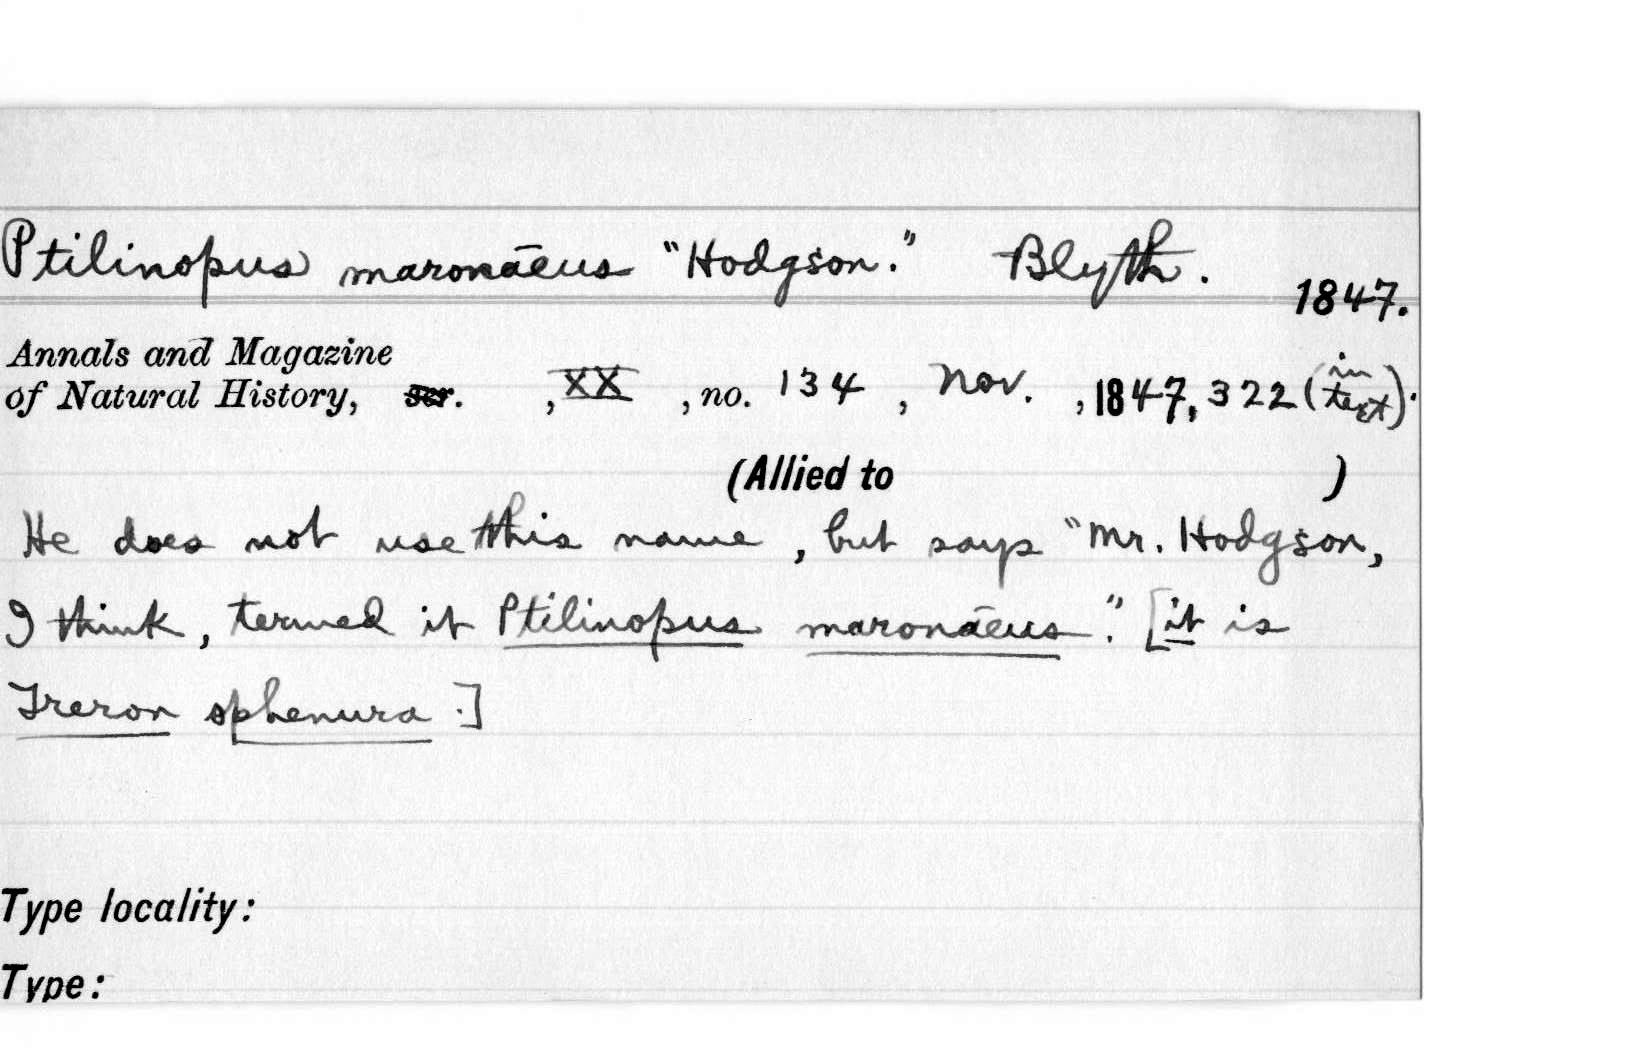 Ptilinopus maronāeus "Hodgson." Blyth.
1847.
Annals and Magazine
of Natural History, ser. , XX , no. 134 , Nov. , 1847, 322 (in text).
(Allied to )
He does not use this name , but says "Mr. Hodgson,
I think, termed it Ptilinopus maronāeus". [it is
Treron sphenura.]
Type locality:
Type: